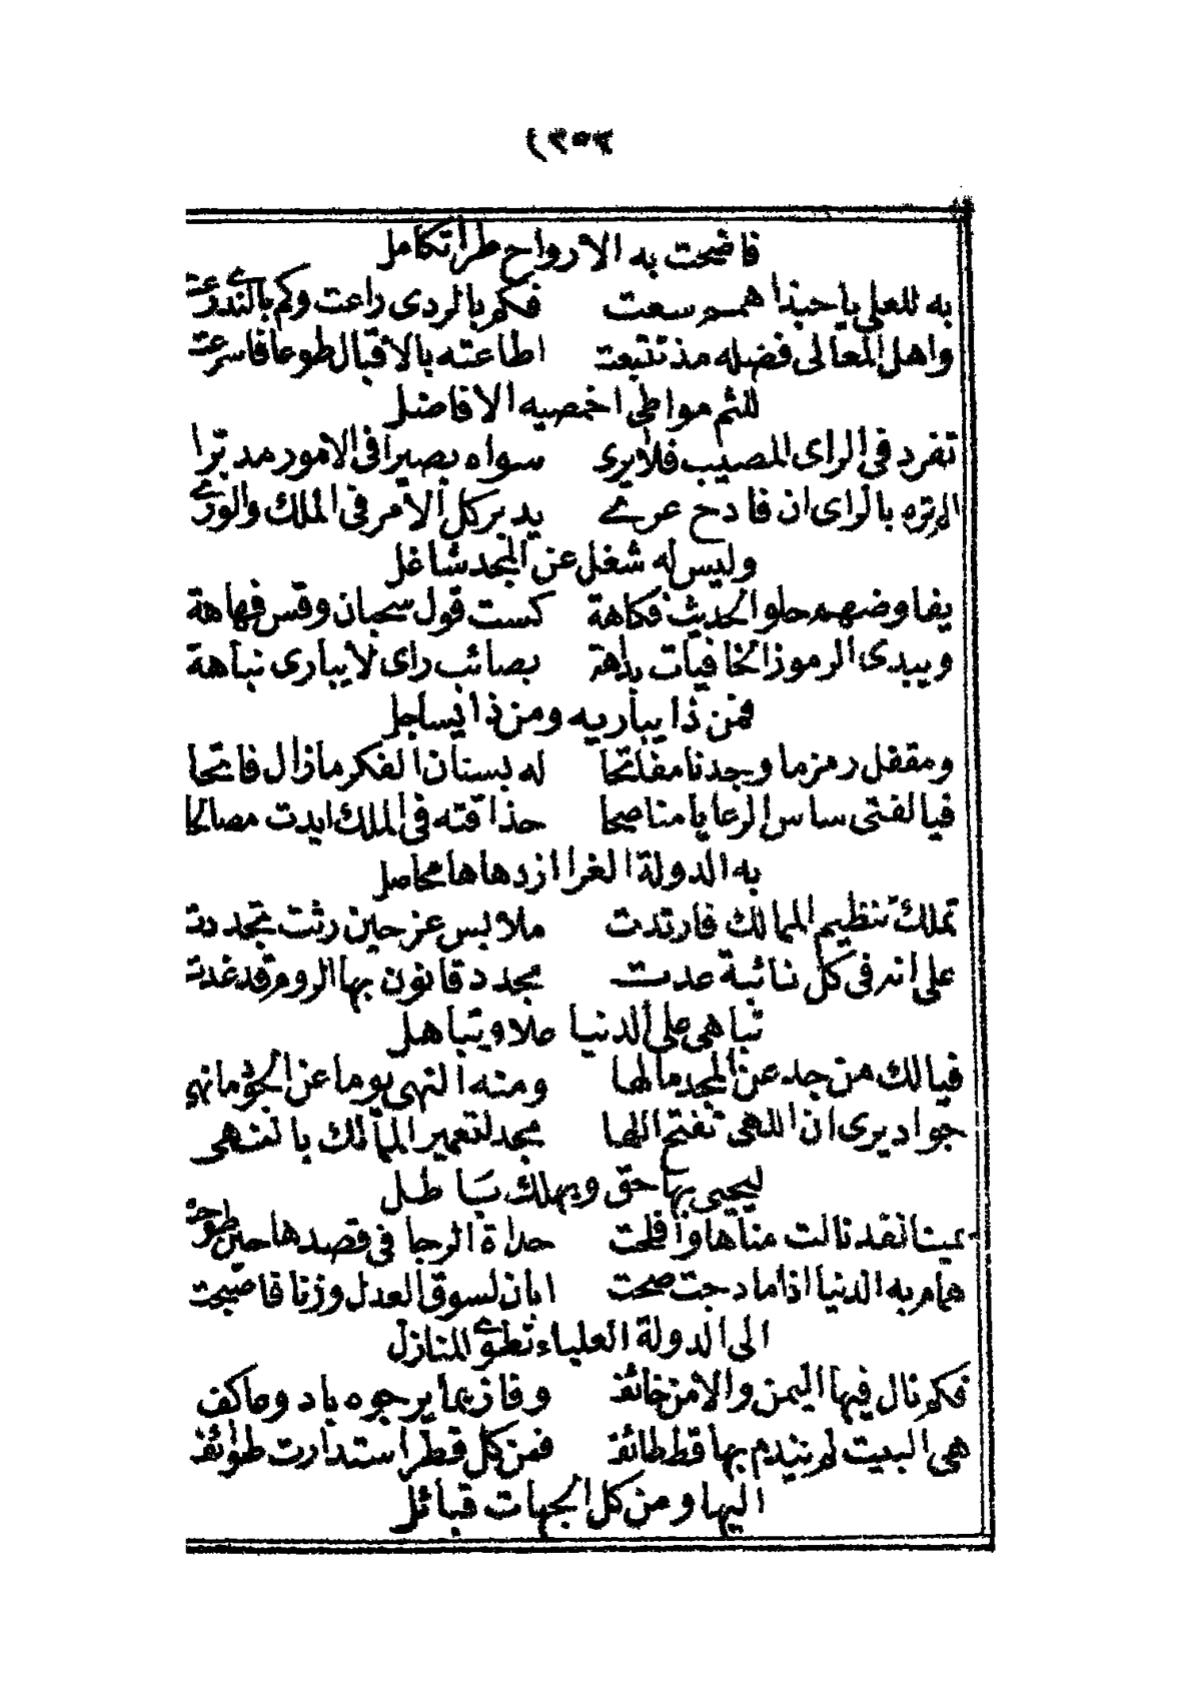 ٣٥٣
فاضحت به الأرواح طرا تكامل
به للعلى يا حبذا همم سعت فكم بالردى راعت وكم بالندى رعت
واهل المعالى فضله مذ تتبعت اطاعته بالاقبال طوعا فاسرعت
للثم مواطى اخمصيه الافاضل
تفرد فى الراى المصيب فلا يرى سواه بصيرا فى الامور مدبرا
الم تره بالراى ان فادح عرى يدبر كل الامر فى الملك والورى
وليس له شغل عن المجد شاغل
يفاوضهم حلو الحديث فكاهة كست قول سحبان وقس فهاهة
ويبدى الرموز الخافيات بداهة بصائب راى لا يبارى نباهة
فمن ذا يباريه ومن ذا يساجل
ومقفل رمز ما وجدنا مفاتحا له بسنان الفكر ما زال فاتحا
فيا لفتى ساس الرعايا مناصحا حذاقته فى الملك ابدت مصالحا
به الدولة الغرا ازدهاها محاصل
تملك تنظيم الممالك فارتدت ملابس عز حين رثت تجددت
على انه فى كل نائبة عدت مجدد قانون بها الروم قد غدت
تباهى على الدنيا علا وتباهل
فيالك من جد عن المجد مالها ومنه النهى يوما عن الحق مانهى
جواد يرى ان اللهى تفتح اللها مجد لتعمير الممالك بالنهى
ليحيى بها حق ويهلك باطل
يمينا لقد نالت مناها وافلحت حداة الرجا فى قصدها حين طوحت
همام به الدنيا اذا ما دجت صحت ابان لسوق العدل وزنا فاصبحت
الى الدولة العلياء تطوى المنازل
فكم نال فيها اليمن والامن خائف وفاز بما يرجوه باد وعاكف
هى البيت لم يندم بها قط طائف فمن كل قطر استدارت طوائف
اليها ومن كل الجهات قبائل